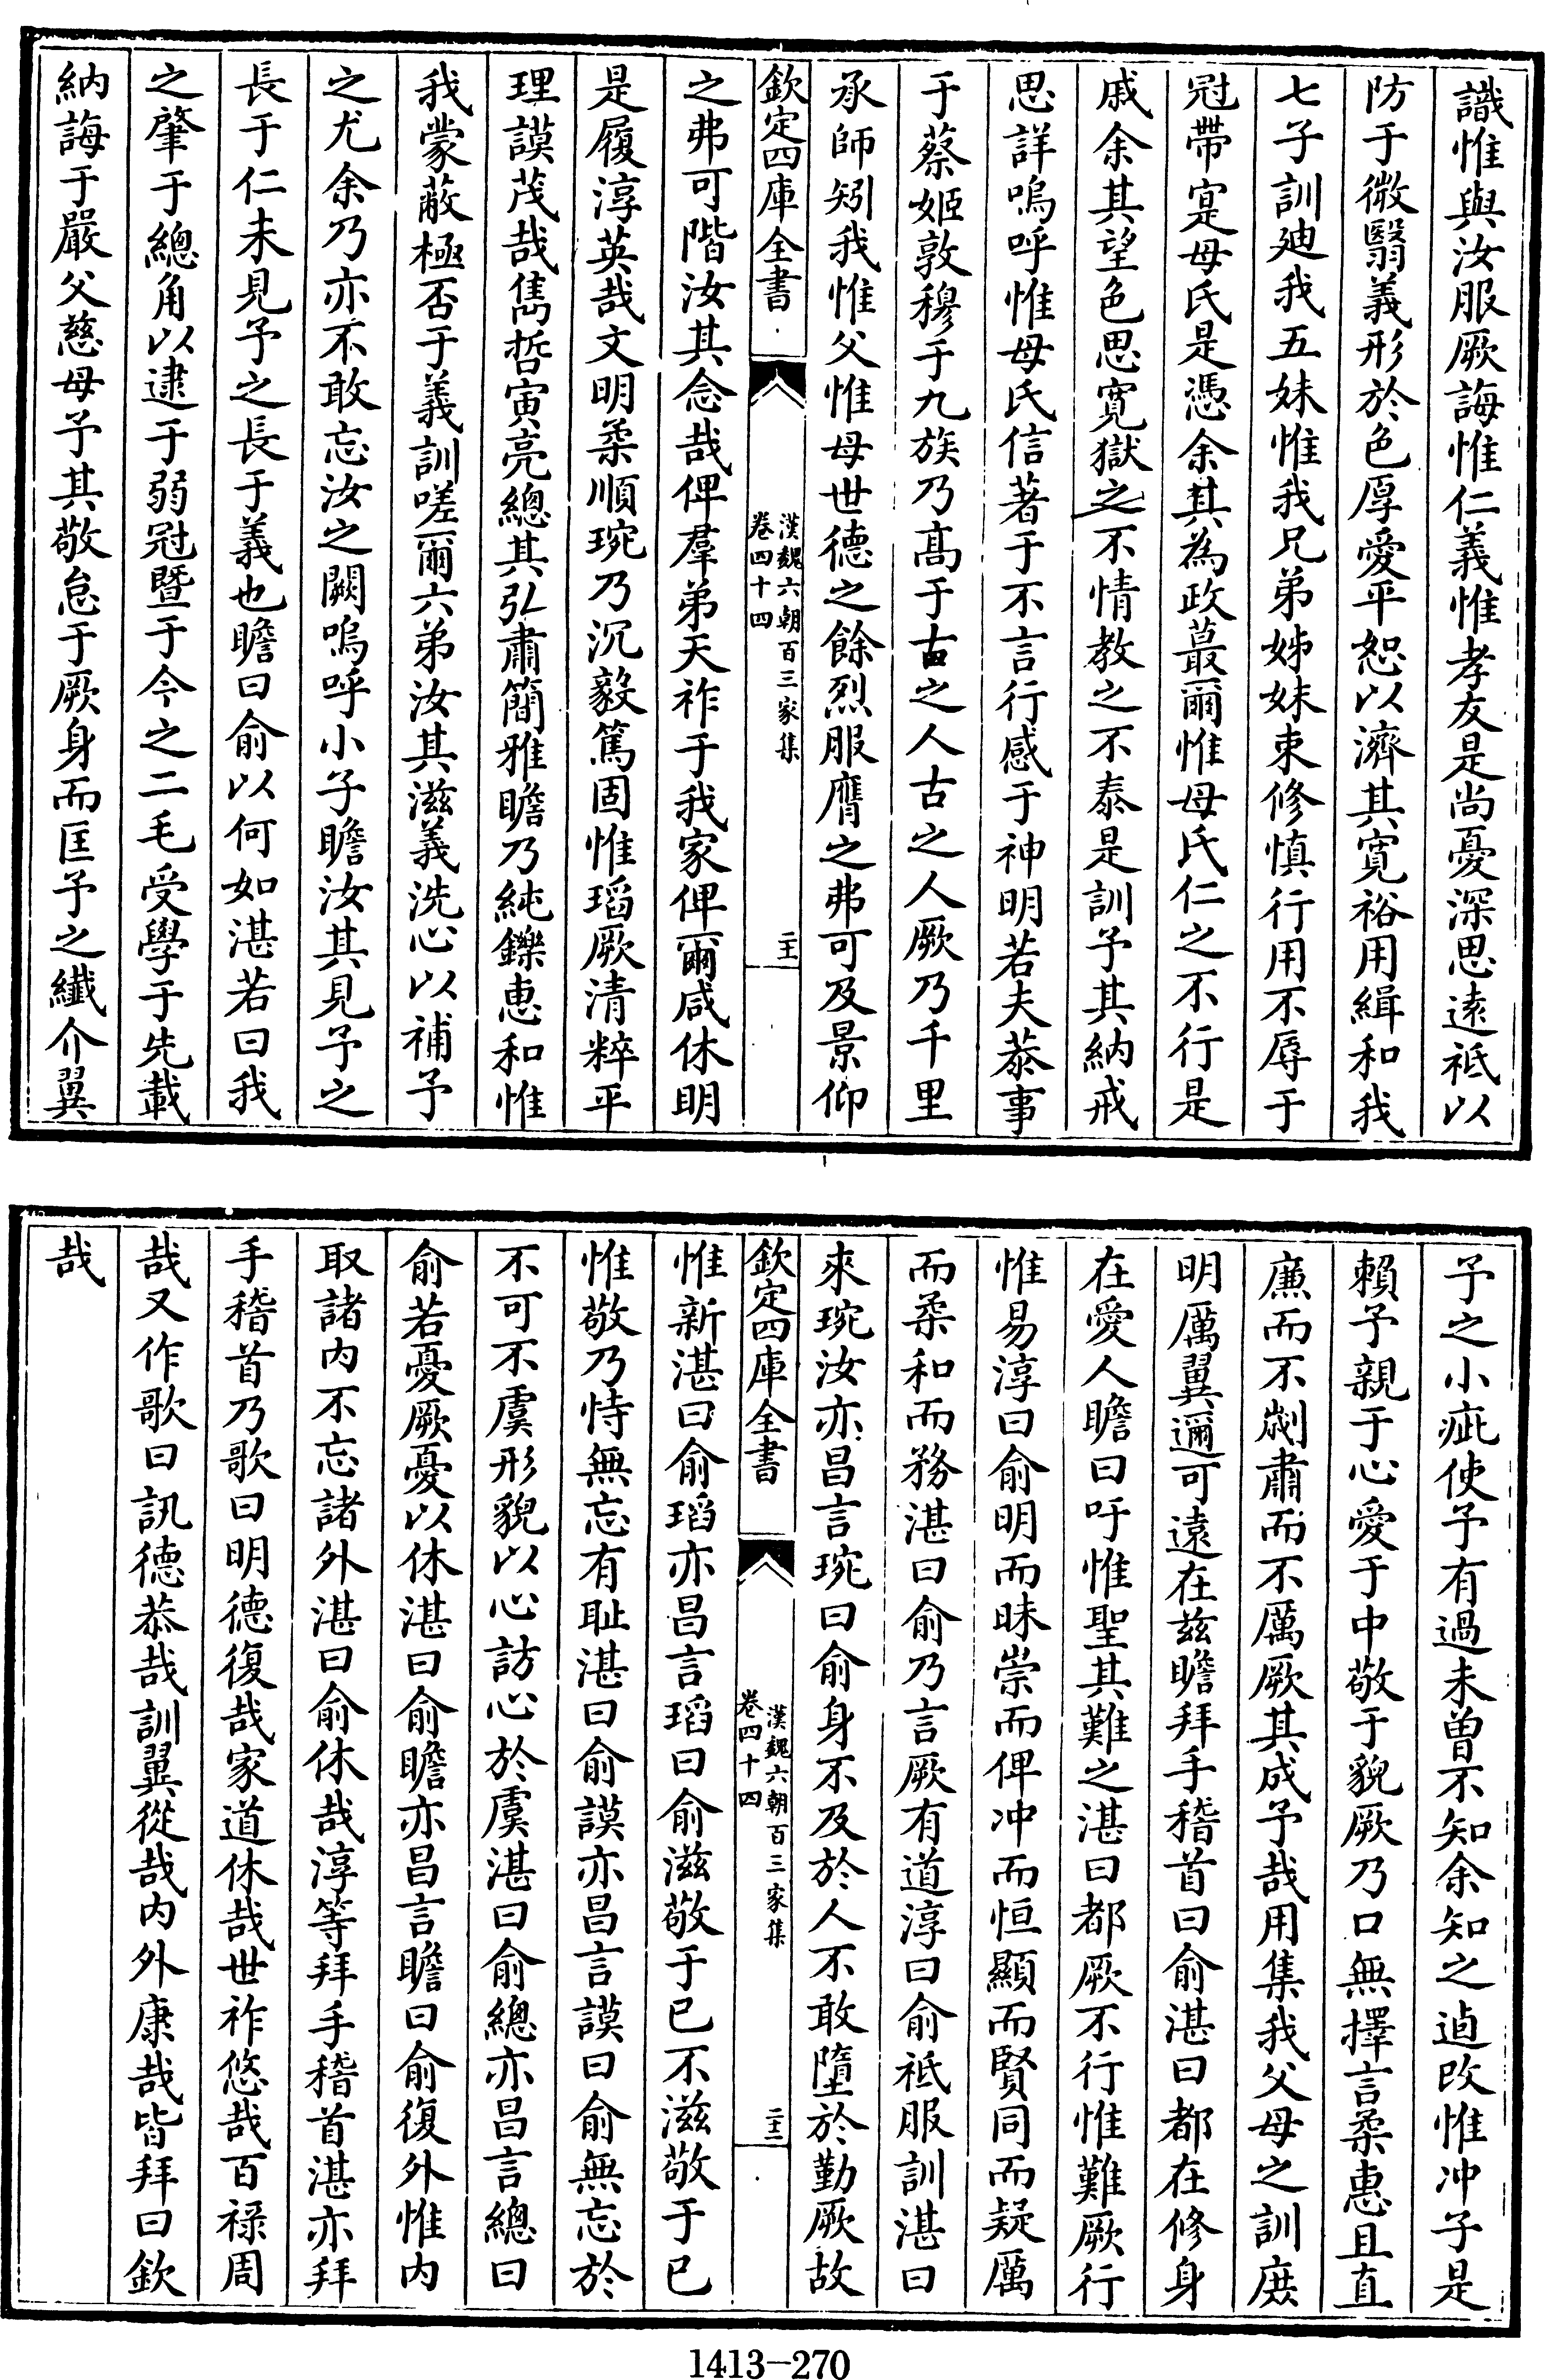 識惟與汝服厥誨惟仁義惟孝友是尚憂深思遠祗以
防于微翳義形於色厚愛平恕以濟其寛裕用緝和我
七子訓廸我五妹惟我兄弟姊妹束修慎行用不辱于
冠帶寔母氏是憑余其為政蕞爾惟母氏仁之不行是
戚余其望色思寛獄之不情教之不泰是訓予其納戒
思詳嗚呼惟母氏信著于不言行感于神明若夫恭事
于蔡姬敦穆于九族乃髙于古之人古之人厥乃千里
承師矧我惟父惟母世德之餘烈服膺之弗可及景仰
欽定四庫全書
漢魏六朝百三家集
卷四十四
二十一
之弗可階汝其念哉俾羣弟天祚于我家俾爾咸休明
是履淳英哉文明柔順琬乃沉毅篤固惟瑫厥清粹平
理謨茂哉雋哲寅亮總其弘肅簡雅瞻乃純鑠惠和惟
我蒙蔽極否于義訓嗟爾六弟汝其滋義洗心以補予
之尤余乃亦不敢忘汝之闕嗚呼小子瞻汝其見予之
長于仁未見予之長于義也瞻曰俞以何如湛若曰我
之肇于總角以逮于弱冠暨于今之二毛受學于先載
納誨于嚴父慈母予其敬怠于厥身而匡予之纖介翼
予之小疵使予有過未曾不知余知之逌改惟冲子是
賴予親于心愛于中敬于貌厥乃口無擇言柔惠且直
亷而不劌肅而不厲厥其成予哉用集我父母之訓庶
明厲翼邇可遠在兹瞻拜手稽首曰俞湛曰都在修身
在愛人瞻曰吁惟聖其難之湛曰都厥不行惟難厥行
惟易淳曰俞明而昧崇而俾冲而恒顯而賢同而疑厲
而柔和而務湛曰俞乃言厥有道淳曰俞祗服訓湛曰
來琬汝亦昌言琬曰俞身不及於人不敢墮於勤厥故
欽定四庫全書
漢魏六朝百三家集
卷四十四
二十二
惟新湛曰俞瑫亦昌言瑫曰俞滋敬于已不滋敬于已
惟敬乃恃無忘有耻湛曰俞謨亦昌言謨曰俞無忘於
不可不虞形貌以心訪心於虞湛曰俞總亦昌言總曰
俞若憂厥憂以休湛曰俞瞻亦昌言瞻曰俞復外惟内
取諸内不忘諸外湛曰俞休哉淳等拜手稽首湛亦拜
手稽首乃歌曰明德復哉家道休哉世祚悠哉百禄周
哉又作歌曰訊德恭哉訓翼從哉内外康哉皆拜曰欽
哉
1413-270